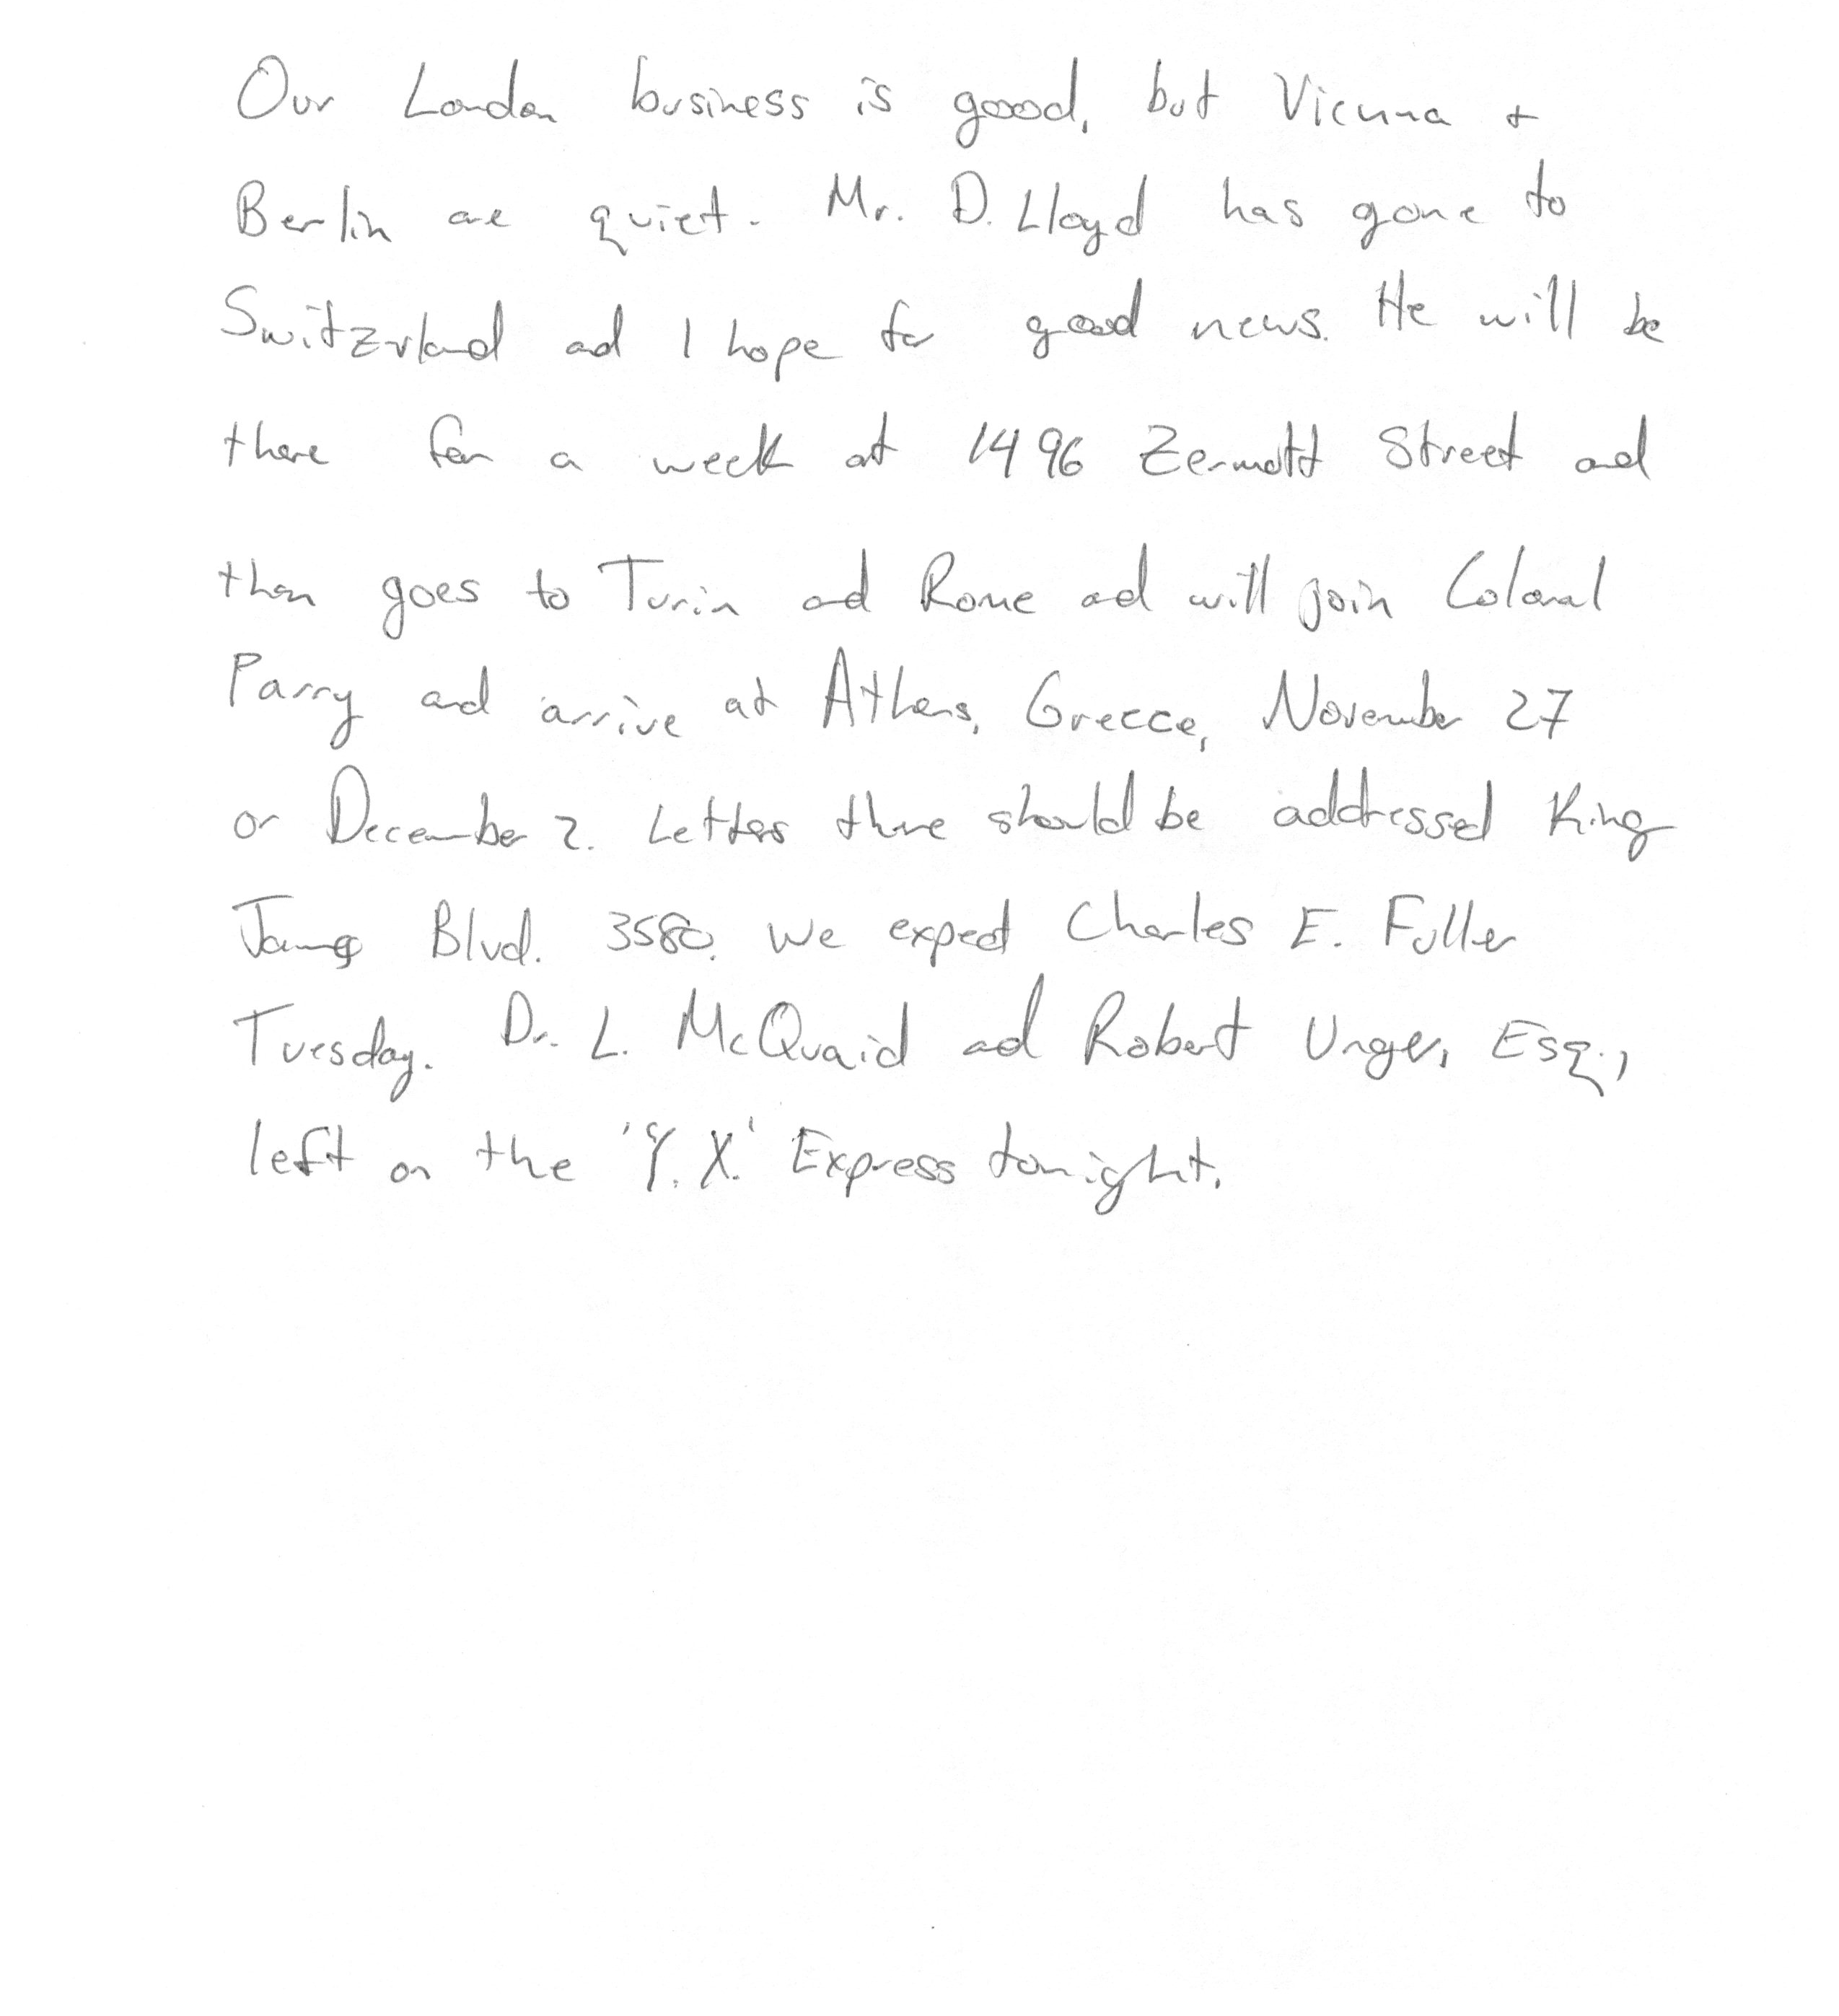 Our London business is good, but Vienna +
Berlin are quiet. Mr. D. Lloyd has gone to
Switzerland and I hope for good news. He will be
there for a week at 1496 Zermott Street and
then goes to Turin and Rome and will join Colonel
Parry and arrive at Athens, Greece, November 27
or December 2. Letters there should be addressed King
James Blvd. 3580. We expect Charles E. Fuller
Tuesday. Dr. L. McQuaid and Robert Unger, Esq.,
left on the 'Y.X.' Express tonight.